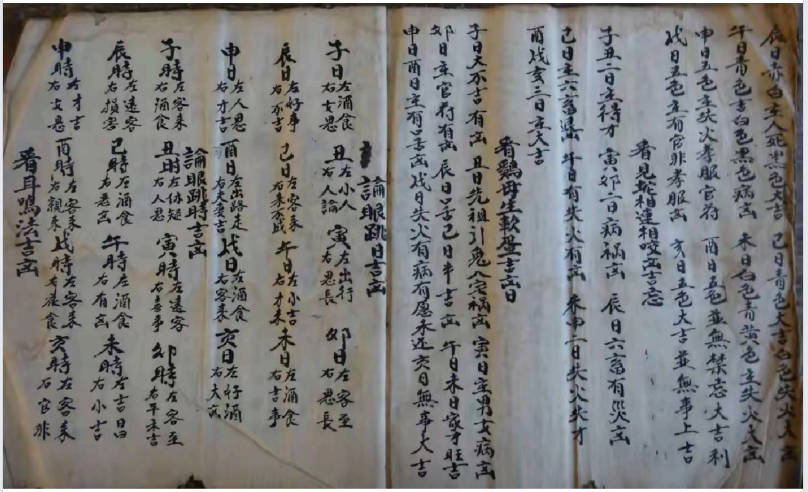 辰日赤白主人死黑色大吉 巳日青色大吉白色失火大凶
午日青色吉白色黑色病凶 未日白色青黃色主失火大凶
申日五色主失火孝服官符 酉日五色並無禁忌大吉利
戌日五色主有官非孝服凶 亥日五色大吉並無事上吉
看見蛇相連相咬凶吉忌
子丑二日主得才 寅卯二日病禍凶 辰日六畜有災凶
巳日主六畜退 午日有失火有凶 未申二日失火失才
酉戌亥三日主大吉
看鷄母生軟蛋吉凶日
子日大不吉有凶 丑日先祖引鬼入宅禍凶 寅日主男女病凶
卯日主官符有凶 辰日口舌巳日半吉凶 午日未日家才旺吉
申日酉日主有口舌凶 戌日失火有病有愿未还 亥日無事大吉
論眼跳日吉凶
子日左酒食右女思 丑左小人右人論 寅左出行右思長 卯日左客至右思長
辰日左好事右不吉 巳日左客來右來成 午日左小吉右才來 未日左酒食右吉事
申日左人思右才吉 酉日左出路走右大吉 戌日左酒食右客來 亥日左好酒右大凶
論眼跳時吉凶
子時左客來右酒食 丑時左右人思 寅時左遠客右喜事 卯時左客至右平平吉
辰時左遠客右損害 巳時左酒食右凶 午時左酒食右有凶 未時左吉右小吉
申時左才吉右女思 酉時左客來右親來 戌時左客來右食 亥時左客來右官非
看耳鳴法吉凶